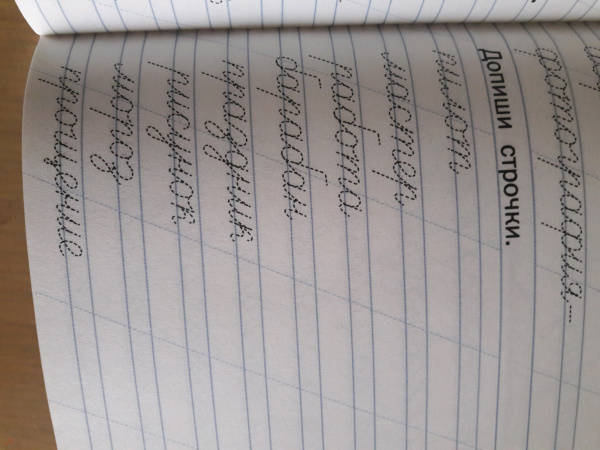 фотография –
Допиши строчки.
пилот
мастер
работа
барабан
праздник
рисунок
прощение